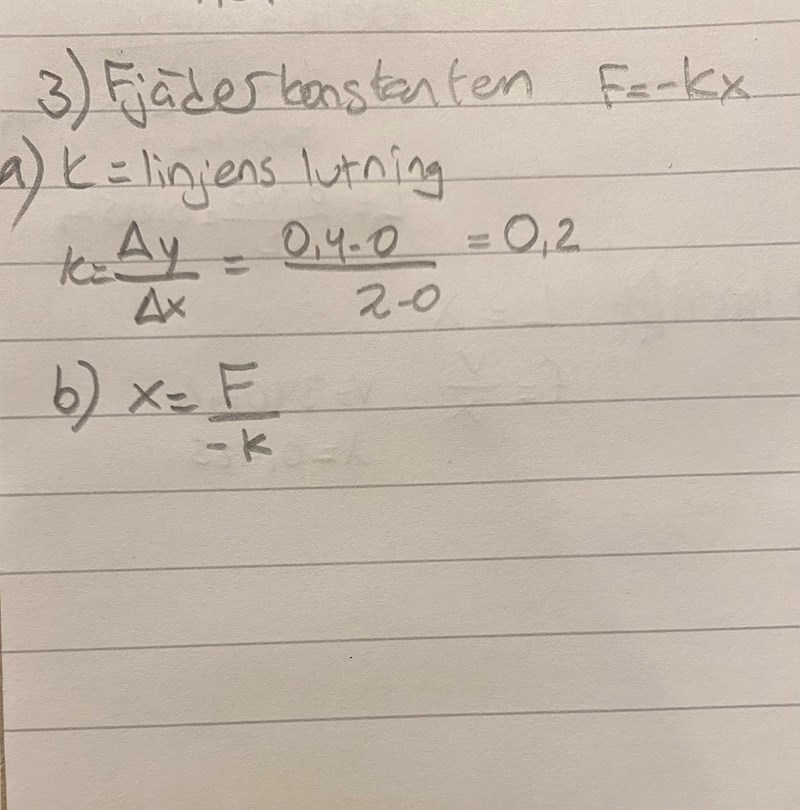 3) Fjäderkonstanten F=-kx
a) k=linjens lutning
k=Δy/Δx = 0,4-0/2-0 =0,2
b) x=F/-k